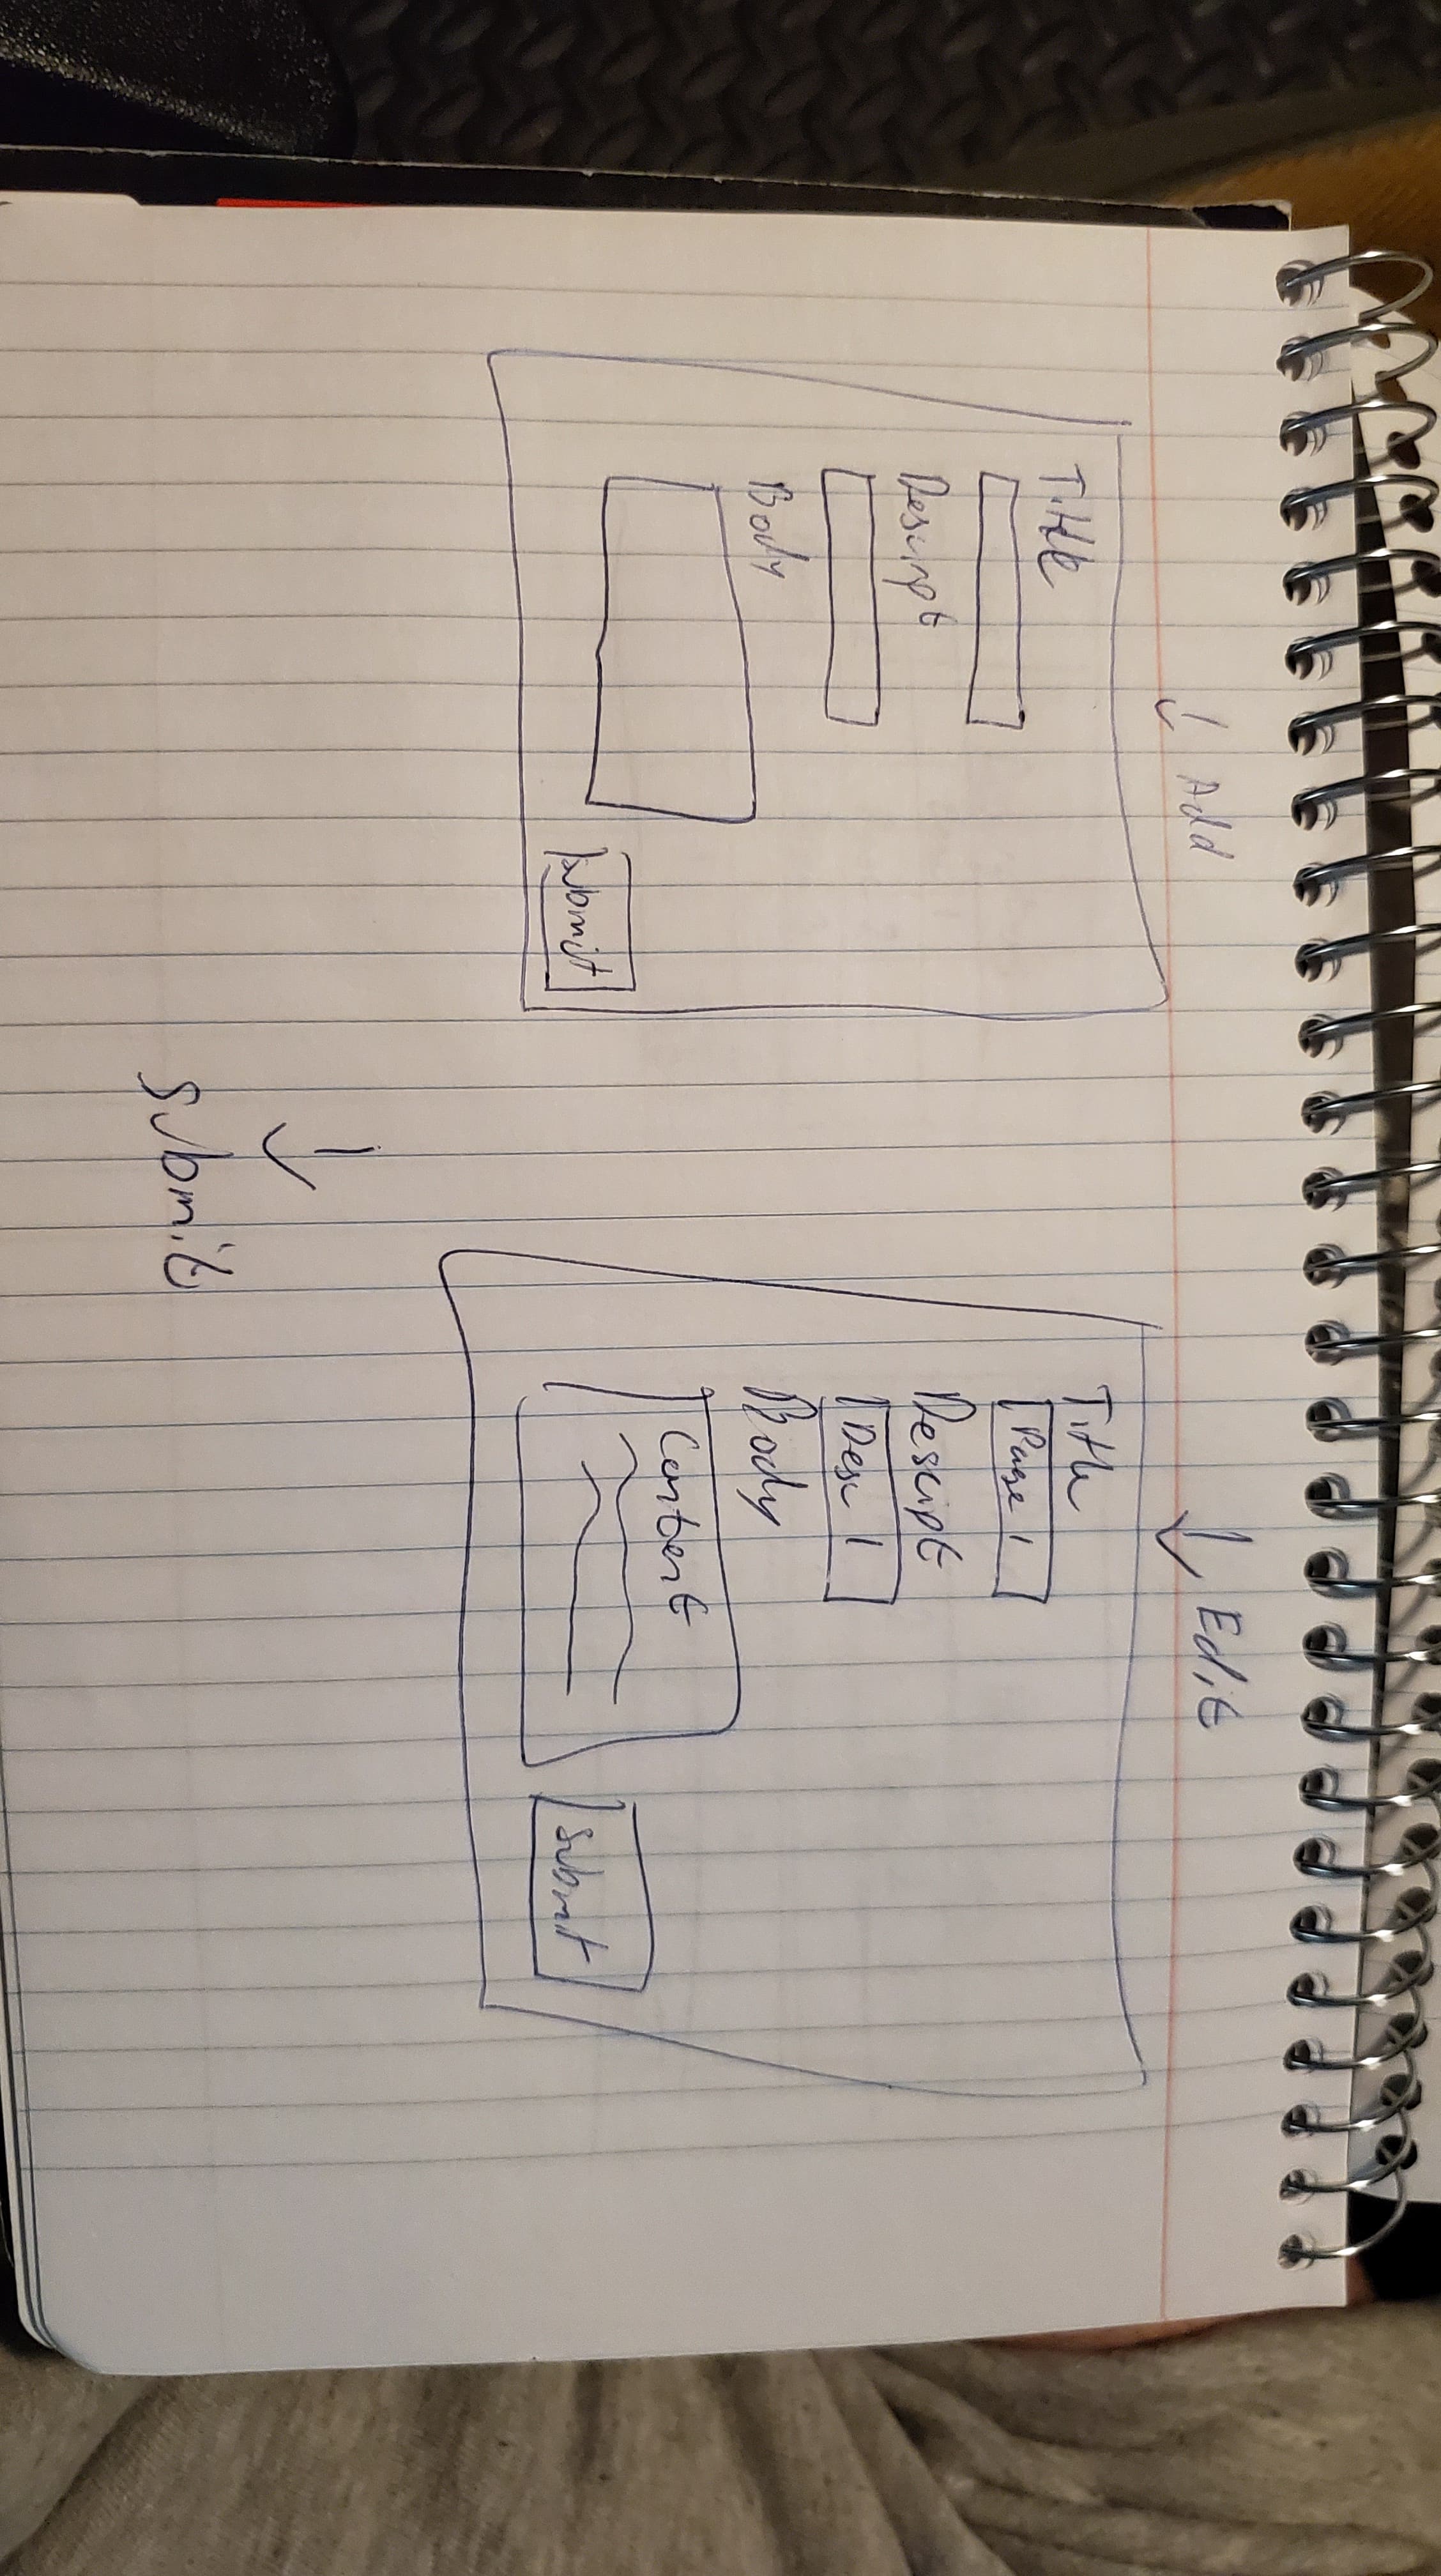 Add
Title
Descript
Body
Submit
Edit
Title
Page 1
Descript
Desc 1
Body
Content
Submit
Submit